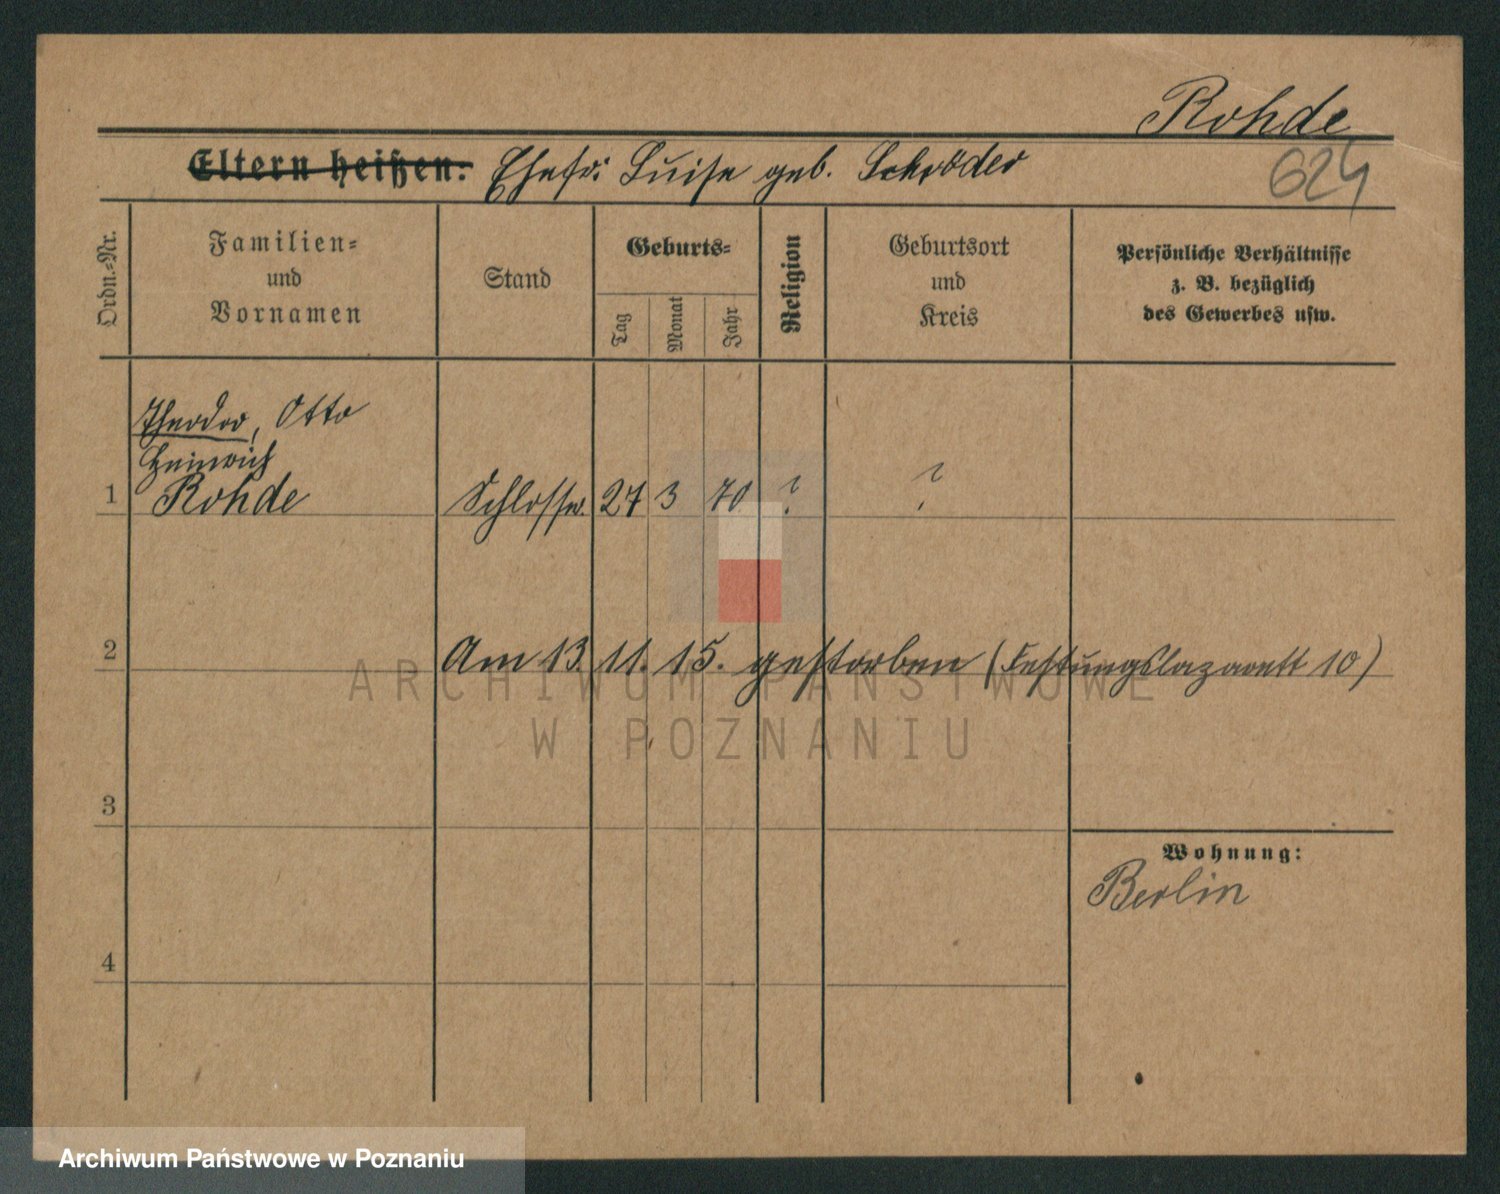 Rohde
624
Eltern heißen: Ehefr: Luise geb. Schröder
Ordn.-Nr.
Familien-
und
Vornamen
Stand
Geburts-
Tag
Monat
Jahr
Religion
Geburtsort
und
Kreis
Persönliche Verhältnisse
z. B. bezüglich
des Gewerbes usw.
Theodor, Otto
Heinrich
1 Rohde Schlosser. 27 3 70 ? ?
2 Am 13. 11. 15. gestorben (Festungslazarett 10)
ARCHIWUM PAŃSTWOWE
W POZNANIU
3
Wohnung:
Berlin
4
Archiwum Państwowe w Poznaniu